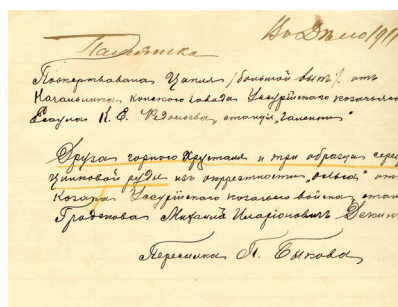 Въ Дело 191
Памятка
Пожертвована Цапля /большой выпь/. отъ
Начальника конского завода Уссурійскаго казачьяго
Есаула П. Е.
Друза горного Хрусталя и три образца сере
цинковой руды изъ окрестности „Ольга" от
Козака Уссурійскаго козачего войска, стан
Гродекова Михаилъ Иларіоновичъ
Пересылка П. Быкова